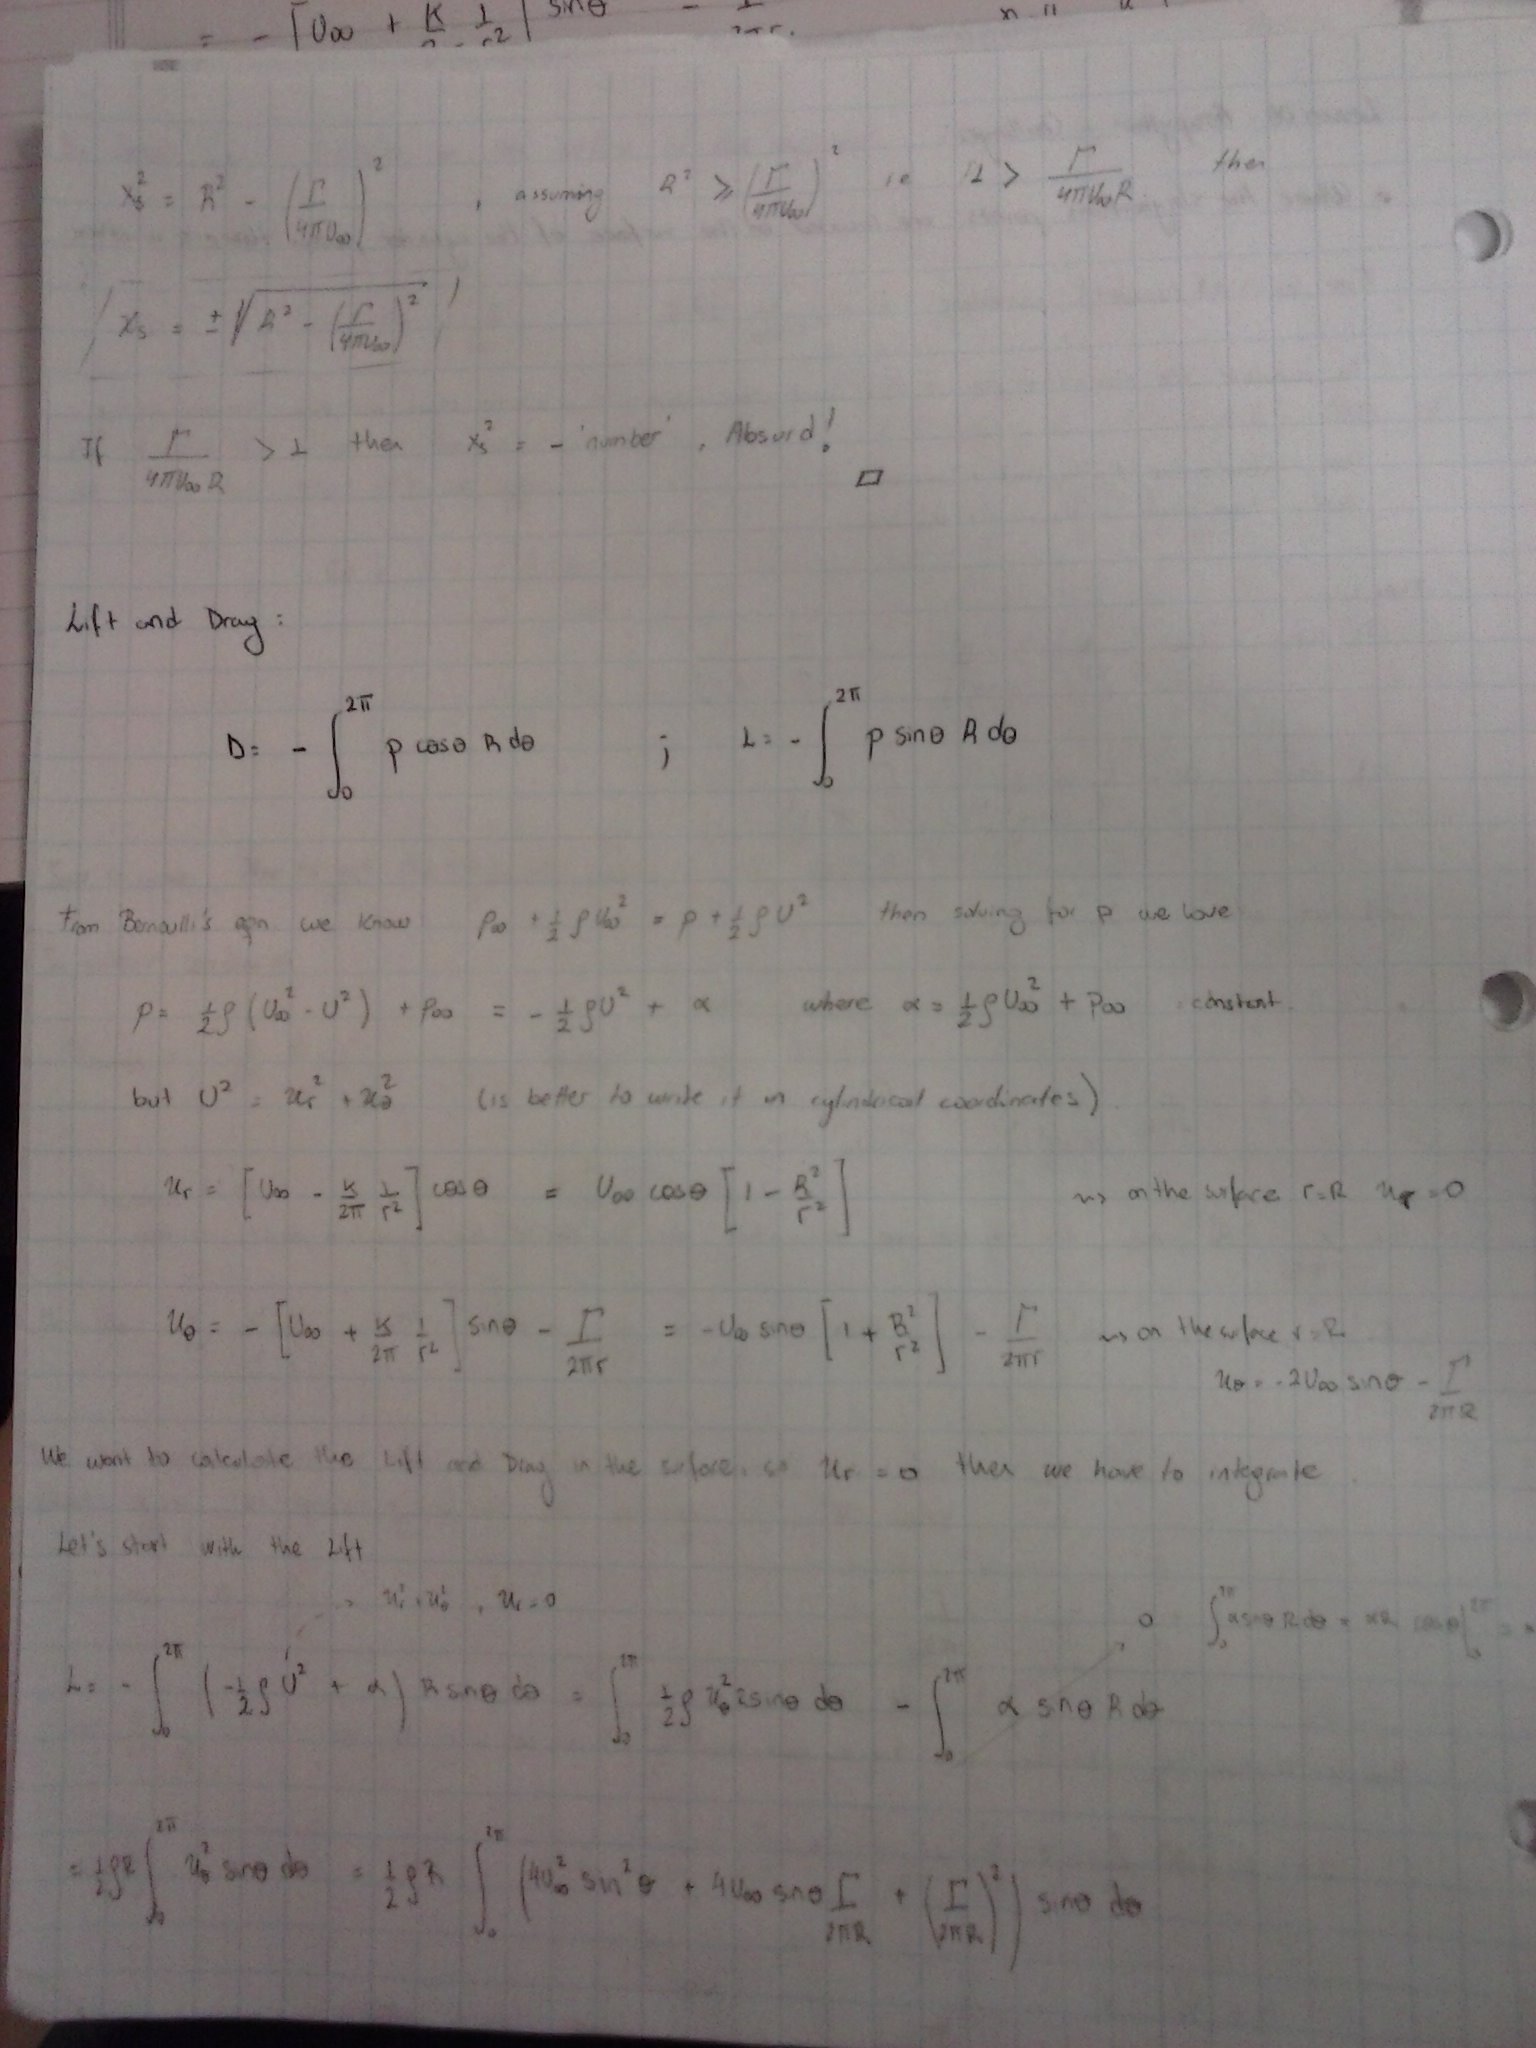 = - [U∞ + K/2π 1/r²] sinθ - Γ/2πr
xs² = R² - (Γ/4πU∞)² , assuming R² ≥ (Γ/4πU∞)² ie 1 > Γ/4πU∞R then
xs = ±√(R² - (Γ/4πU∞)²)
If Γ/4πU∞R > 1 then xs² = - 'number' . Absurd!
□
Lift and Drag:
D = - ∫₀^2π p cosθ R dθ ; L = - ∫₀^2π p sinθ R dθ
From Bernoulli's eqn we know p∞ + 1/2 ρU∞² = p + 1/2 ρU² then solving for p we have
p = 1/2 ρ(U∞² - U²) + p∞ = - 1/2 ρU² + α where α = 1/2 ρU∞² + p∞ constant.
but U² = ur² + uθ² (is better to write it in cylindrical coordinates)
ur = [U∞ - K/2π 1/r²] cosθ = U∞ cosθ [1 - R²/r²] ⇝ on the surface r=R ur = 0
uθ = - [U∞ + K/2π 1/r²] sinθ - Γ/2πr = -U∞ sinθ [1 + R²/r²] - Γ/2πr ⇝ on the surface r=R
uθ = -2U∞ sinθ - Γ/2πR
We want to calculate the Lift and Drag in the surface, so ur = 0 then we have to integrate.
Let's start with the Lift
→ ur²+uθ² , ur=0
0 ∫₀^2π α sinθ R dθ = αR cosθ|₀^2π =
L = - ∫₀^2π (-1/2 ρU² + α) R sinθ dθ = ∫₀^2π 1/2 ρ uθ² R sinθ dθ - ∫₀^2π α sinθ R dθ
= 1/2 ρR ∫₀^2π uθ² sinθ dθ = 1/2 ρR ∫₀^2π (4U∞² sin²θ + 4U∞ sinθ Γ/2πR + (Γ/2πR)²) sinθ dθ